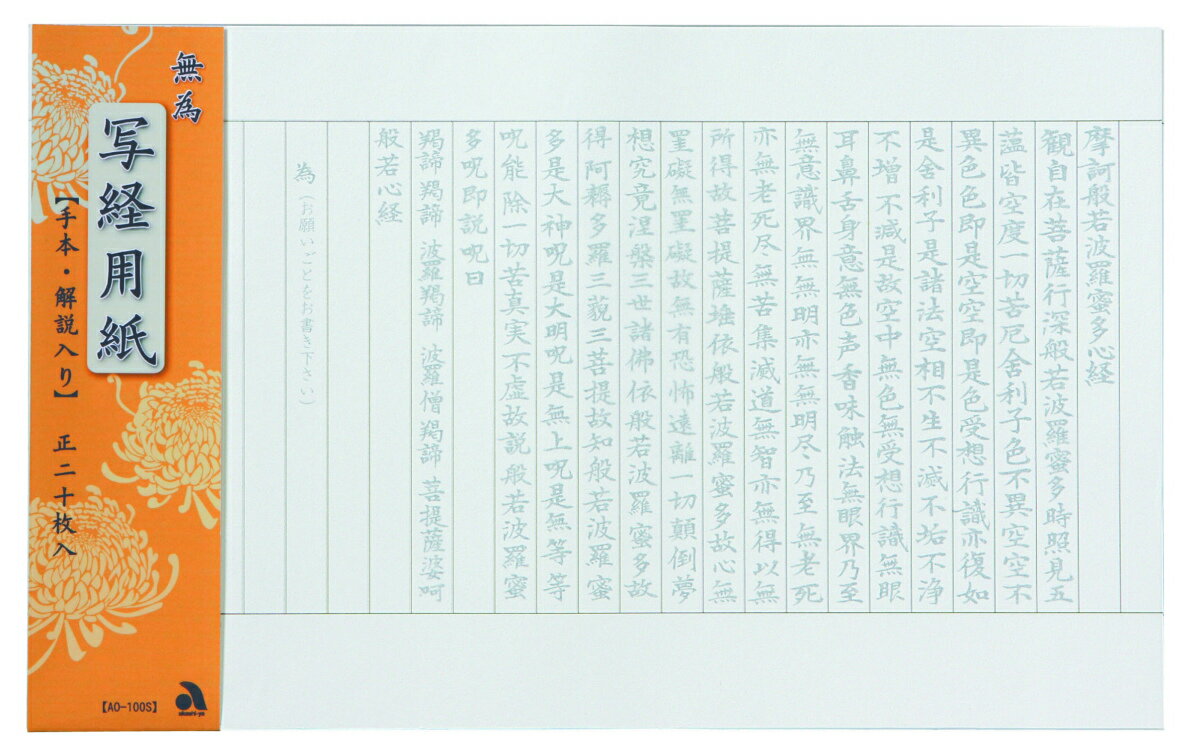 摩訶般若波羅蜜多心経
観自在菩薩行深般若波羅蜜多時照見五
蘊皆空度一切苦厄舎利子色不異空空不
異色色即是空空即是色受想行識亦復如
是舎利子是諸法空相不生不滅不垢不浄
不増不減是故空中無色無受想行識無眼
耳鼻舌身意無色声香味触法無眼界乃至
無意識界無無明亦無無明尽乃至無老死
亦無老死尽無苦集滅道無智亦無得以無
所得故菩提薩埵依般若波羅蜜多故心無
罣礙無罣礙故無有恐怖遠離一切顛倒夢
想究竟涅槃三世諸佛依般若波羅蜜多故
得阿耨多羅三藐三菩提故知般若波羅蜜
多是大神呪是大明呪是無上呪是無等等
呪能除一切苦真実不虚故説般若波羅蜜
多呪即説呪曰
羯諦羯諦 波羅羯諦 波羅僧羯諦 菩提薩婆呵
般若心経
為（お願いごとをお書き下さい）
無為
写経用紙
【手本・解説入り】 正二十枚入
【AO-100S】
akashi-ya